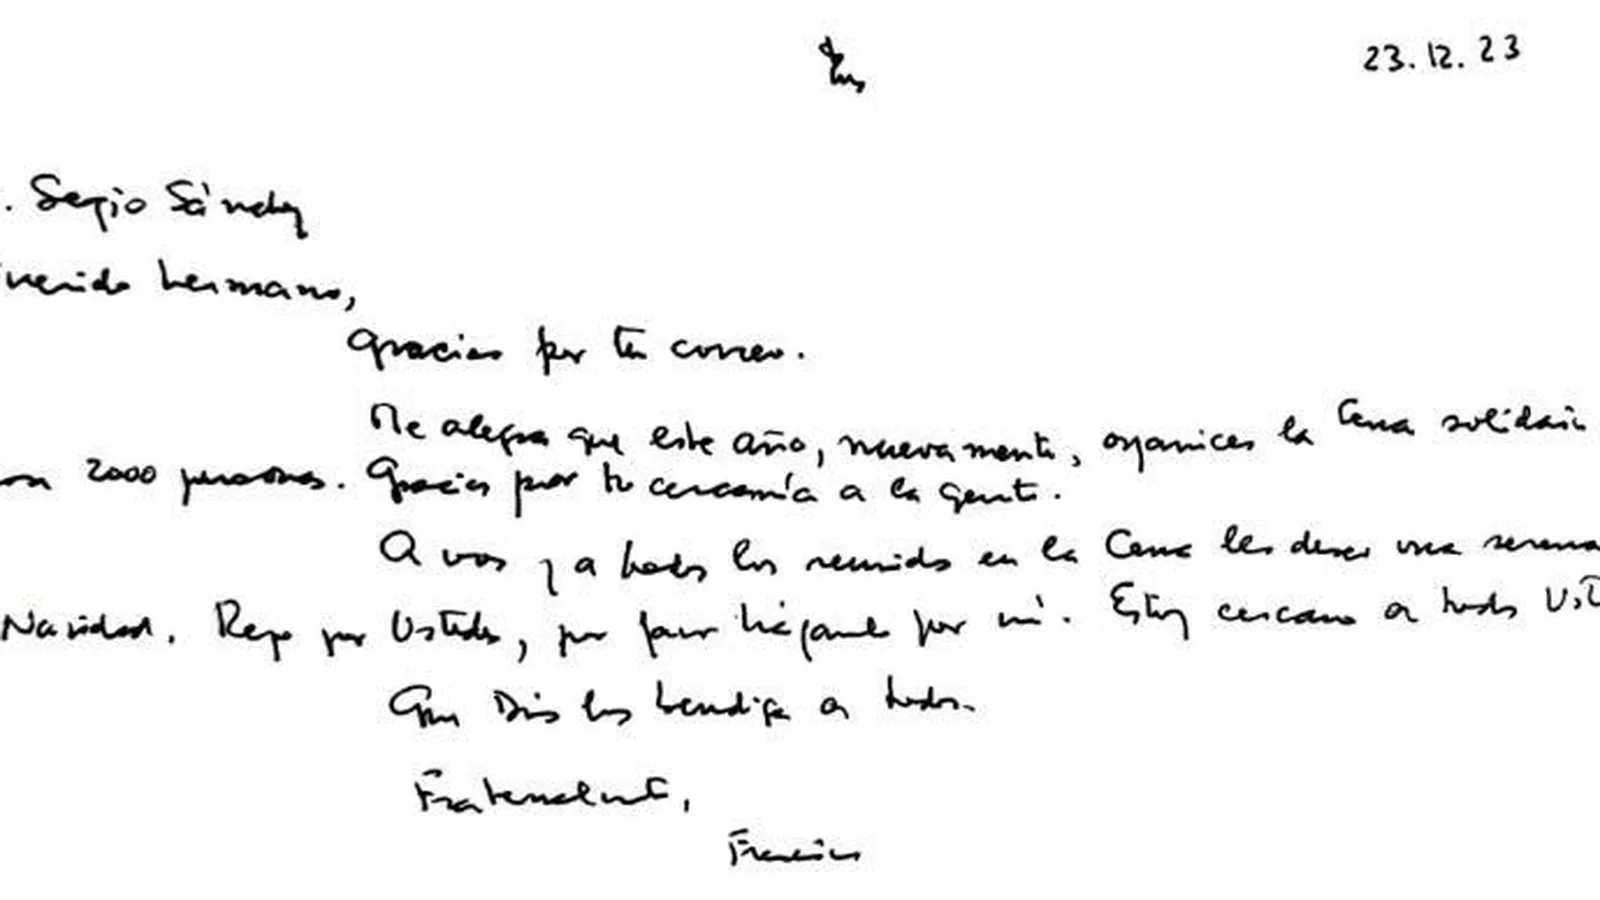 23.12.23
. Sergio Sánchez
Querido hermano,
Gracias por tu correo.
Me alegra que este año, nuevamente, organices la Cena solidaria
2000 personas. Gracias por tu cercanía a la gente.
A vos y a todos los reunidos en la Cena les deseo una serena
Navidad. Rezo por Ustedes, por favor háganlo por mí. Estoy cercano a todos Ust
Que Dios los bendiga a todos.
Fraternalmente,
Francisco